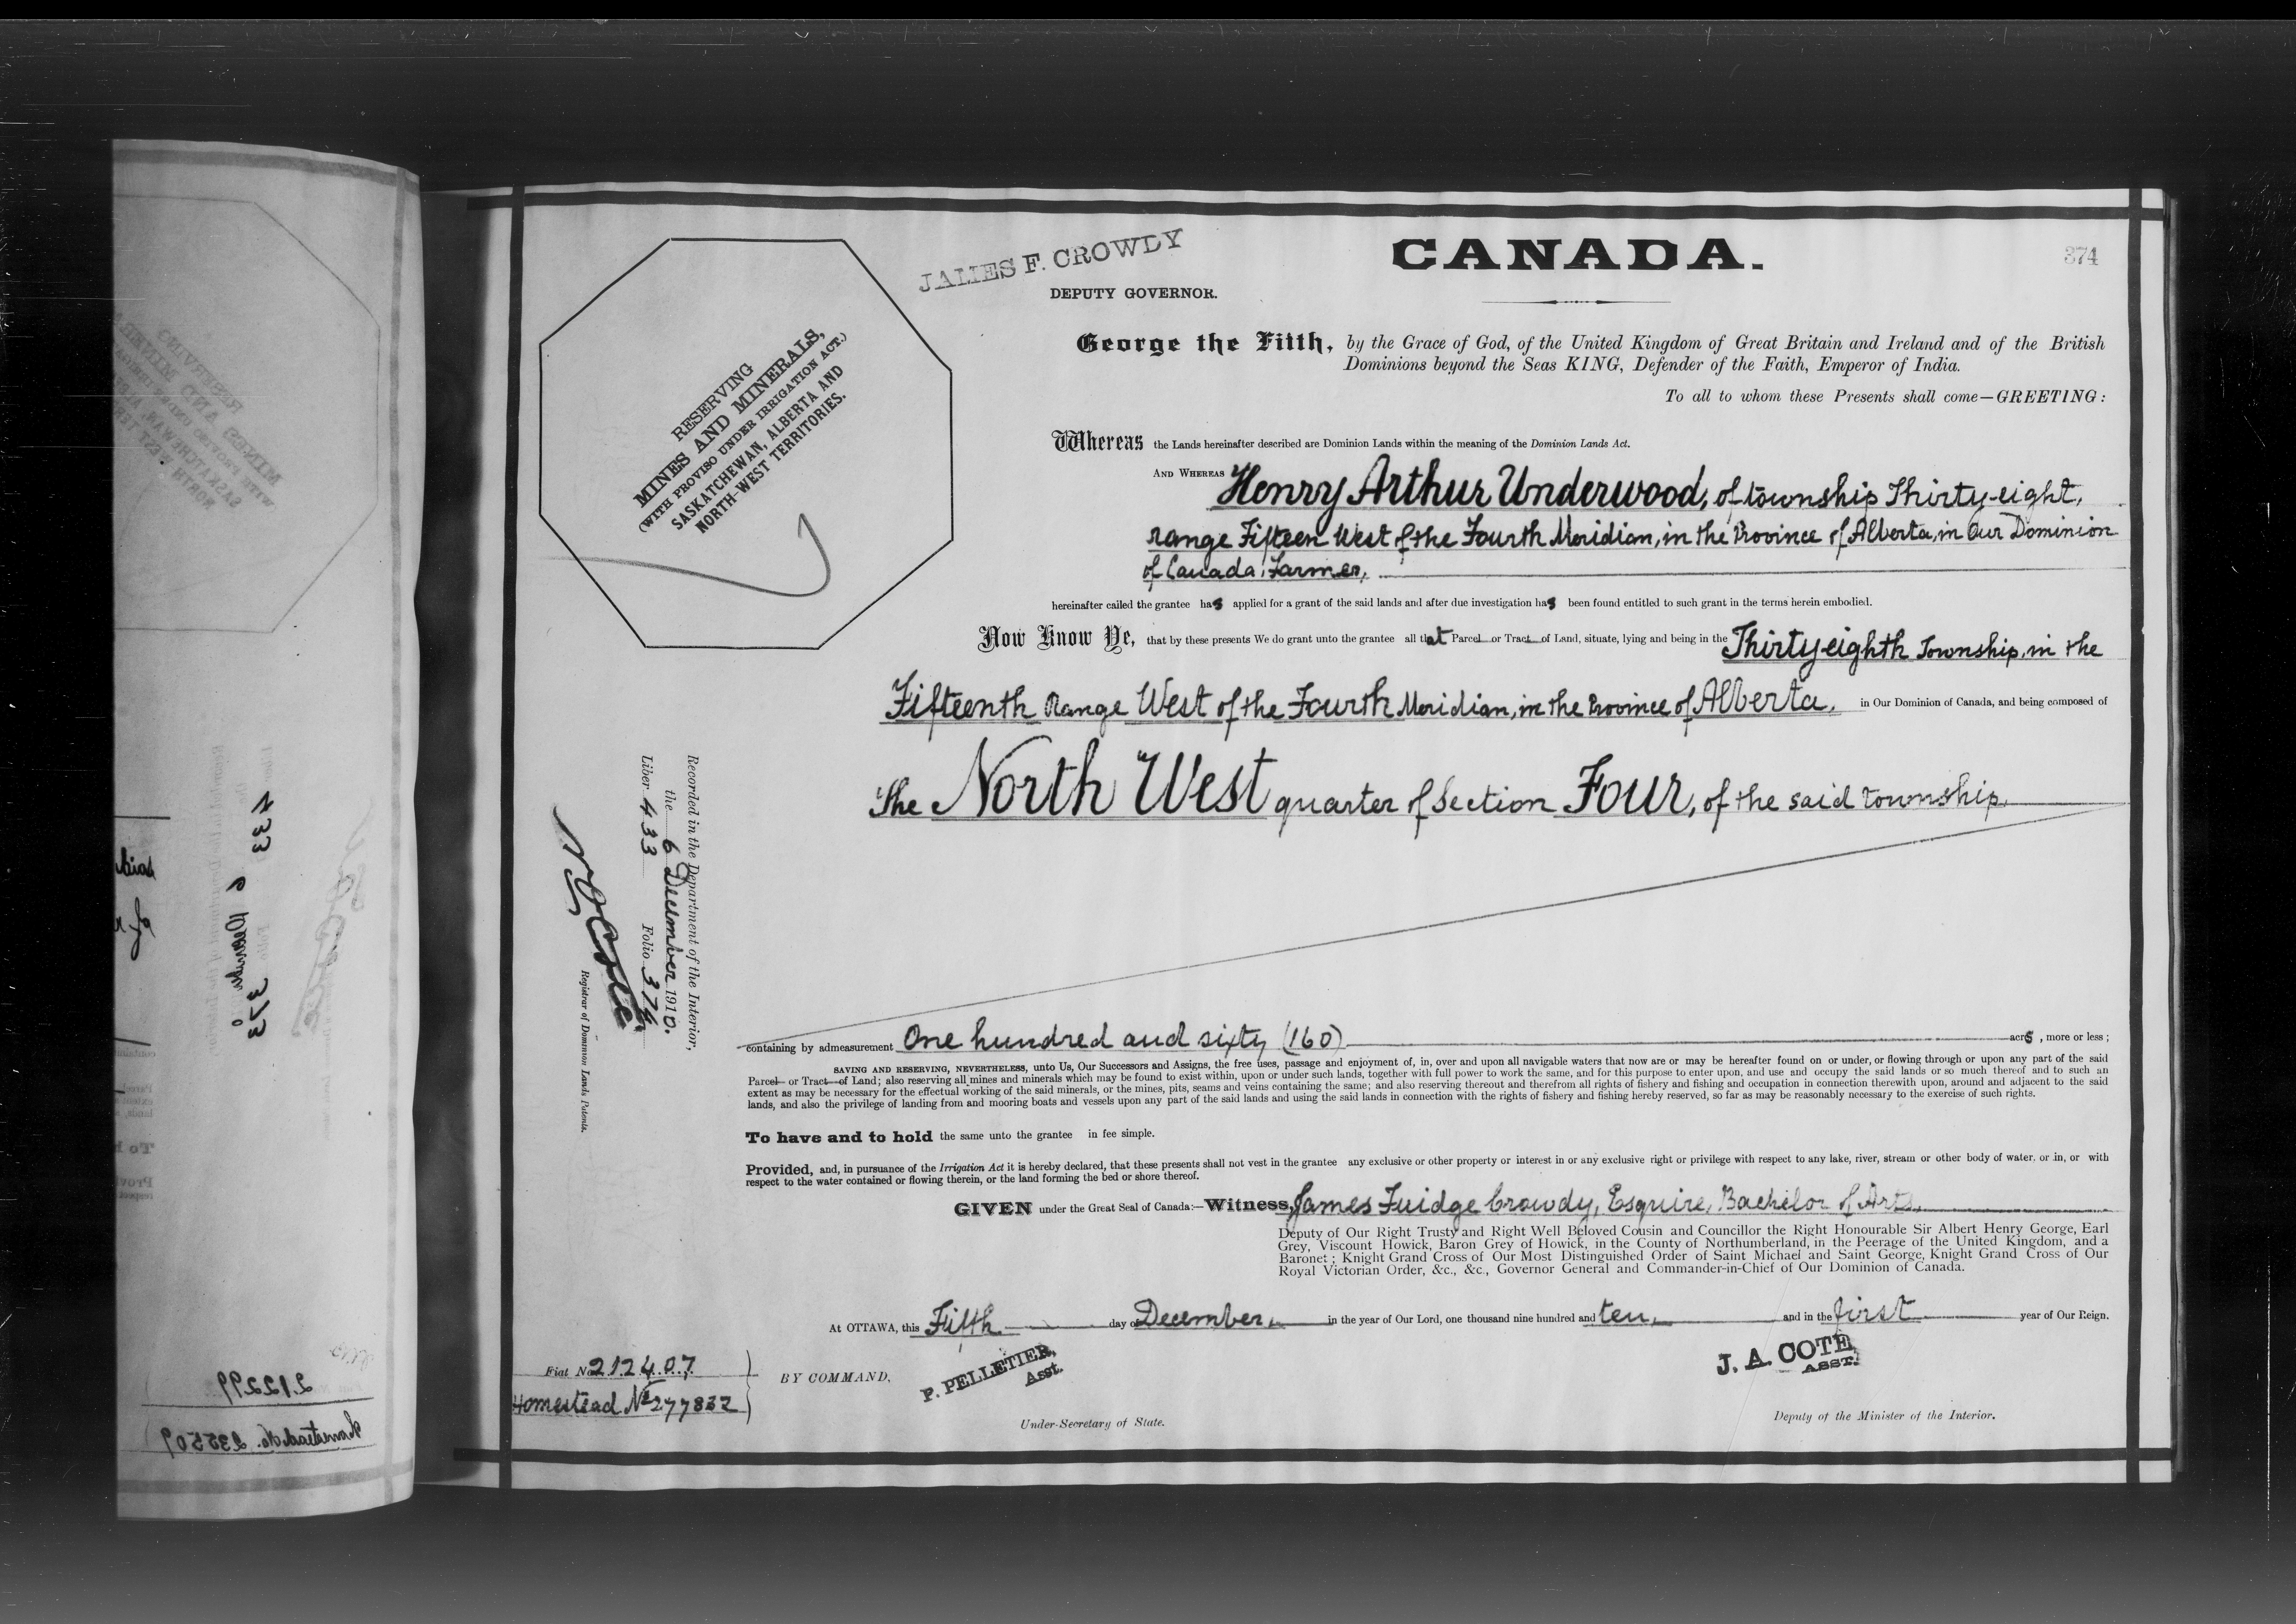 JAMES F. CROWDY
DEPUTY GOVERNOR.
CANADA.
374
RESERVING
MINES AND MINERALS,
(WITH PROVISO UNDER IRRIGATION ACT.)
SASKATCHEWAN, ALBERTA AND
NORTH-WEST TERRITORIES.
George the Fifth, by the Grace of God, of the United Kingdom of Great Britain and Ireland and of the British
Dominions beyond the Seas KING, Defender of the Faith, Emperor of India.
To all to whom these Presents shall come—GREETING:
Whereas the Lands hereinafter described are Dominion Lands within the meaning of the Dominion Lands Act.
AND WHEREAS Henry Arthur Underwood, of township Thirty-eight,
range Fifteen West of the Fourth Meridian, in the Province of Alberta, in Our Dominion
of Canada, Farmer,
hereinafter called the grantee has applied for a grant of the said lands and after due investigation has been found entitled to such grant in the terms herein embodied.
Now Know Ye, that by these presents We do grant unto the grantee all that Parcel or Tract of Land, situate, lying and being in the Thirty-eighth Township, in the
Fifteenth Range West of the Fourth Meridian, in the Province of Alberta, in Our Dominion of Canada, and being composed of
the North West quarter of Section Four, of the said township,
Recorded in the Department of the Interior,
the 6 December 1910.
Liber 433 Folio 374.
N O Coté
Registrar of Dominion Lands Patents.
containing by admeasurement One hundred and sixty (160) acrs, more or less;
SAVING AND RESERVING, NEVERTHELESS, unto Us, Our Successors and Assigns, the free uses, passage and enjoyment of, in, over and upon all navigable waters that now are or may be hereafter found on or under, or flowing through or upon any part of the said
Parcel or Tract of Land; also reserving all mines and minerals which may be found to exist within, upon or under such lands, together with full power to work the same, and for this purpose to enter upon, and use and occupy the said lands or so much thereof and to such an
extent as may be necessary for the effectual working of the said minerals, or the mines, pits, seams and veins containing the same; and also reserving thereout and therefrom all rights of fishery and fishing and occupation in connection therewith upon, around and adjacent to the said
lands, and also the privilege of landing from and mooring boats and vessels upon any part of the said lands and using the said lands in connection with the rights of fishery and fishing hereby reserved, so far as may be reasonably necessary to the exercise of such rights.
To have and to hold the same unto the grantee in fee simple.
Provided, and, in pursuance of the Irrigation Act it is hereby declared, that these presents shall not vest in the grantee any exclusive or other property or interest in or any exclusive right or privilege with respect to any lake, river, stream or other body of water, or in, or with
respect to the water contained or flowing therein, or the land forming the bed or shore thereof.
GIVEN under the Great Seal of Canada:—Witness, James Fuidge Crowdy, Esquire, Bachelor of Arts,
Deputy of Our Right Trusty and Right Well Beloved Cousin and Councillor the Right Honourable Sir Albert Henry George, Earl
Grey, Viscount Howick, Baron Grey of Howick, in the County of Northumberland, in the Peerage of the United Kingdom, and a
Baronet; Knight Grand Cross of Our Most Distinguished Order of Saint Michael and Saint George, Knight Grand Cross of Our
Royal Victorian Order, &c., &c., Governor General and Commander-in-Chief of Our Dominion of Canada.
At OTTAWA, this Fifth day of December, in the year of Our Lord, one thousand nine hundred and ten, and in the first year of Our Reign.
Fiat No 212407
Homestead No 277832
BY COMMAND,
P. PELLETIER,
Asst.
Under-Secretary of State.
J. A. COTE
ASST.
Deputy of the Minister of the Interior.